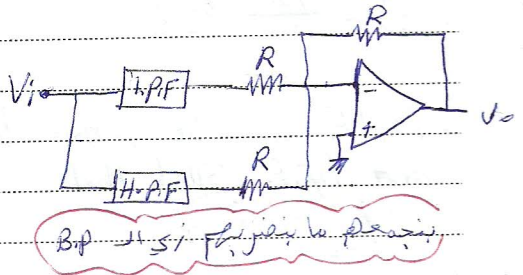 R
Vi
L.P.F
R
-
+
Vo
H.P.F
R
بنجمعهم ما بنضربهم زي الـ B.P